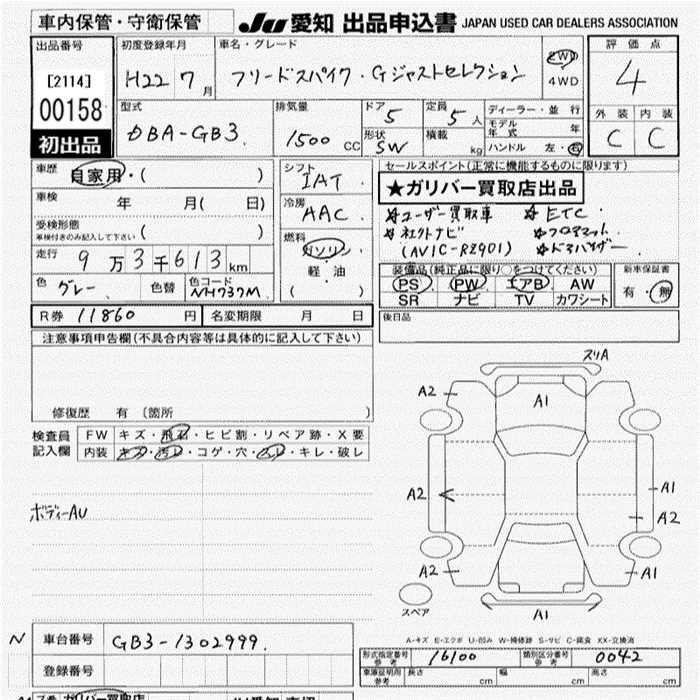 車内保管・守衛保管
JU 愛知 出品申込書 JAPAN USED CAR DEALERS ASSOCIATION
出品番号
[2114]
00158
初出品
初度登録年月
H22 7月
車名・グレード
フリードスパイク・Gジャストセレクション
2WD
4WD
評価点
4
外装 内装
C C
型式
DBA-GB3.
排気量
1500 CC
ドア 5
形状 SW
定員 5人
積載 kg
ディーラー・並行
モデル年式 年
ハンドル 左・右
車歴 自家用・( )
車検 年 月( 日)
受検形態
車検付きのみ記入して下さい ( )
走行 9万3千613km
色 グレー. 色替 色コード NH737M
シフト IAT
冷房 AAC
燃料
ガソリン
軽・油
( )
セールスポイント(正常に機能するものに限ります)
★ガリバー買取店出品
☆ユーザー買取車 ☆ETC.
☆社外ナビ ☆フロアマット.
(AVIC-RZ901) ☆ドアバイザー
装備品(純正品に限り○をつけてください)
PS PW エアB AW
SR ナビ TV カワシート
新車保証書
有・無
R券 11860円 名変期限 月 日
後日品
注意事項申告欄(不具合内容等は具体的に記入して下さい)
修復歴 有 (箇所 )
検査員
記入欄
FW キズ・飛石・ヒビ割・リペア跡・X要
内装 キズ・汚レ・コゲ・穴・スレ・キレ・破レ
ボディーAU
スリA
A2 A1
A2 A1
A2
A2 A1
スペア
A1
N 車台番号 GB3-1302999.
登録番号
A-キズ E-エクボ U-凹み W-補修跡 S-サビ C-腐食 XX-交換済
形式指定番号 参考 16100 類別区分番号 参考 0042
車庫証明用 参考 長さ cm 幅 cm 高さ cm
ガリバー買取店